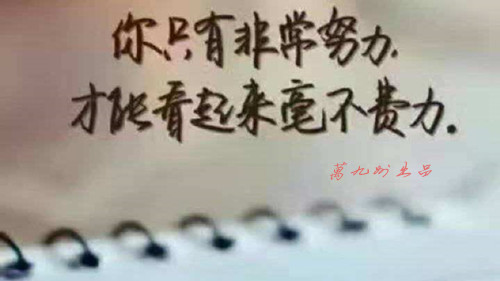 你只有非常努力,
才能看起来毫不费力。
萬九州出品